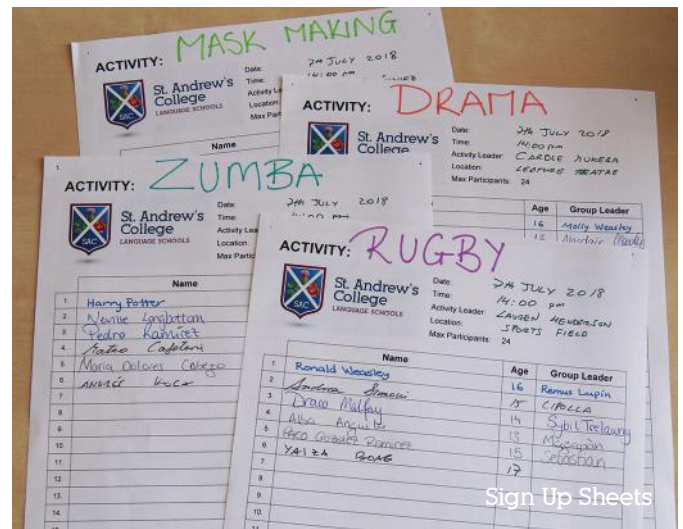 ACTIVITY: MASK MAKING
St. Andrew's
College
LANGUAGE SCHOOLS
SAC
Date: 7th JULY 2018
Time: 14:00 pm
Activity
Location:
Max Part
Name
ACTIVITY: DRAMA
St. Andrew's
College
Date: 7th JULY 2018
Time: 14:00 pm
Activity Leader: CAROLE
Location: LECTURE THEATRE
Max Participants: 24
Age Group Leader
16 Molly Weasley
13
ACTIVITY: ZUMBA
St. Andrew's
College
LANGUAGE SCHOOLS
SAC
Date: 7th JULY 2018
Time:
Activity Lea
Location:
Max Partic
Name
1. Harry Potter
2. Neville Longbottom
3. Pedro Ramírez
4. Mateo
5. Maria Dolores Cabezo
6. ANDRÉS
7.
8.
9.
10.
11.
12.
13.
14.
ACTIVITY: RUGBY
St. Andrew's
College
LANGUAGE SCHOOLS
SAC
Date: 7th JULY 2018
Time: 14:00 pm
Activity Leader: LAUREN HENDERSON
Location: SPORTS FIELD
Max Participants: 24
Name Age Group Leader
1. Ronald Weasley 16 Remus Lupin
2. Andrea Simoni 15 CIPOLLA
3. Draco Malfoy 14 Sybil Trelawny
4. Alba 13
5. Paco González Ramírez 15 Sebastian
6. YAIZA 17
7.
8.
9.
10.
Sign Up Sheets